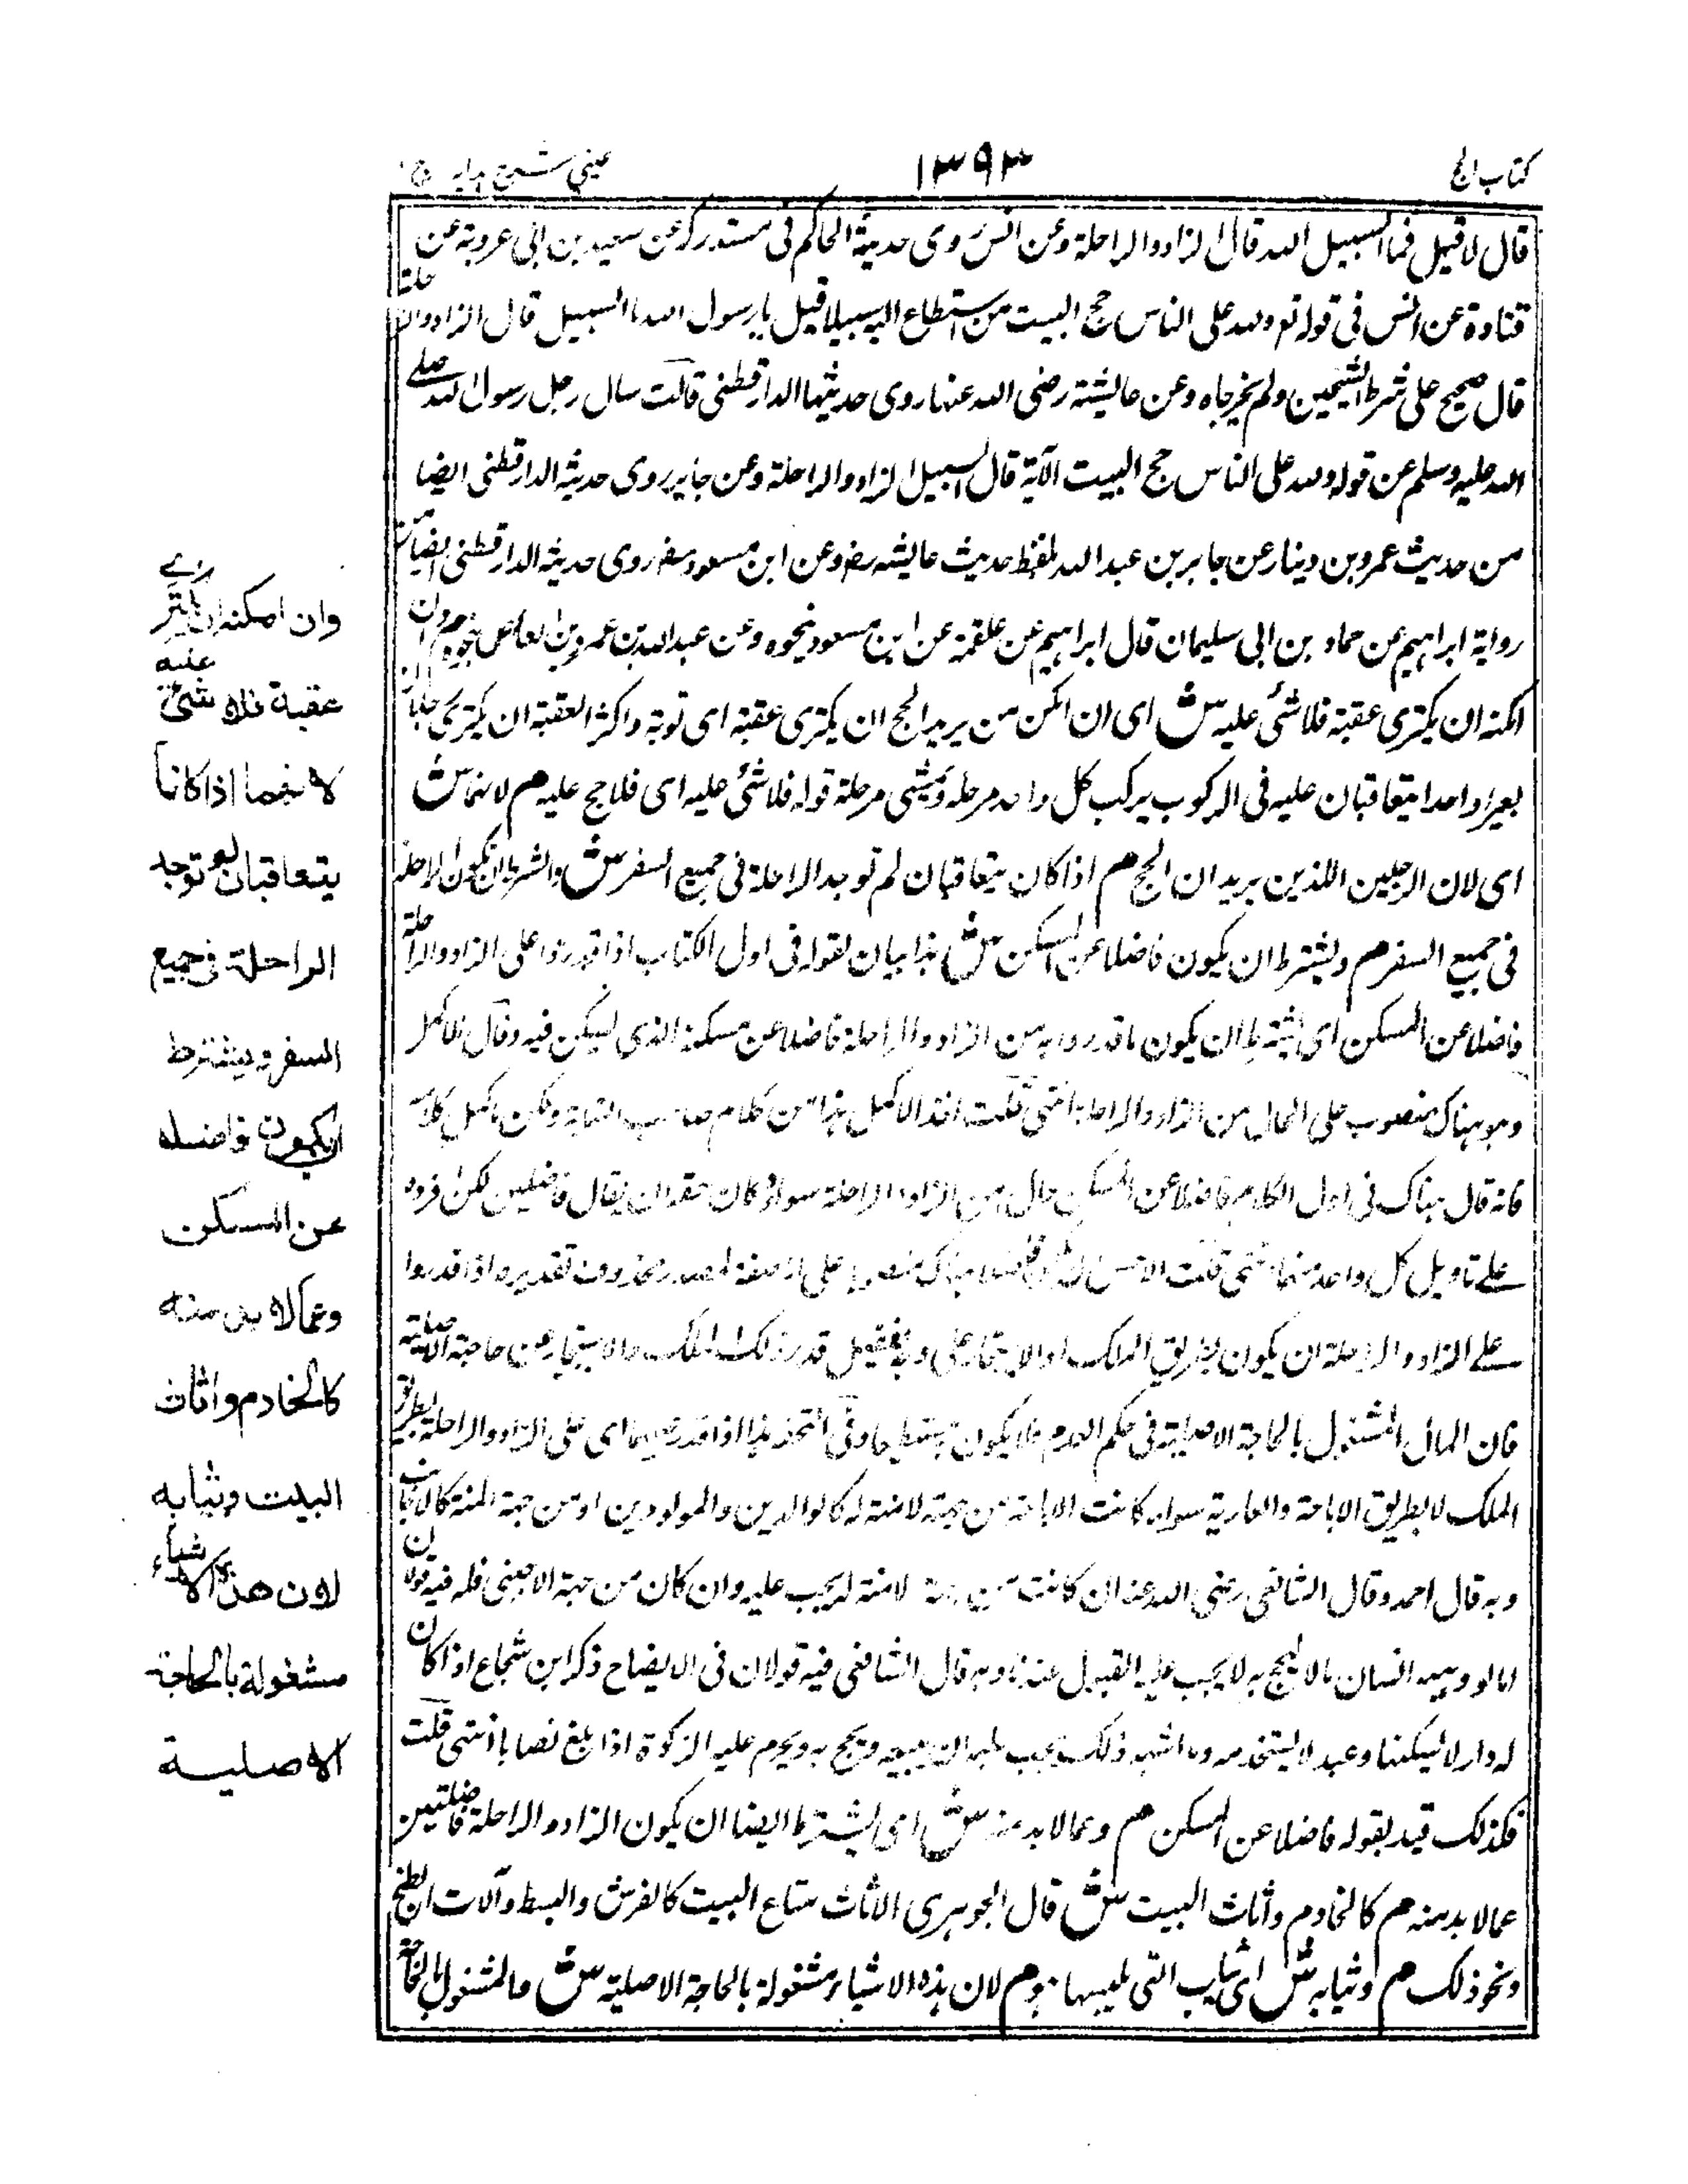 كتاب الحج
١٣٩٣
عيني شرح هدايه ج ١
قال لا قيل فما السبيل الله قال الزاد والراحلة وعن انس روى حديثه الحاكم فى مستدركه عن سعيد بن ابى عروبة عن
قتادة عن انس فى قوله تع ولله على الناس حج البيت من استطاع اليه سبيلا قيل يا رسول الله ما السبيل قال الزاد والراحلة
قال صحيح على شرط الشيخين ولم يخرجاه وعن عايشة رضى الله عنها روى حديثها الدارقطنى قالت سال رجل رسول الله صلى
الله عليه وسلم عن قوله ولله على الناس حج البيت الآية قال السبيل الزاد والراحلة وعن جابر روى حديثه الدارقطنى ايضا
من حديث عمرو بن دينار عن جابر بن عبد الله بلفظ حديث عايشه رض وعن ابن مسعود رض روى حديثه الدارقطنى ايضا من
رواية ابراهيم عن حماد بن ابى سليمان قال ابراهيم عن علقمة عن ابن مسعود نحوه وعن عبد الله بن عمرو بن العاص نحوه م وان
امكنه ان يكترى عقبة فلا شئ عليه ش اى ان امكن من يريد الحج ان يكترى عقبة اى نوبة واكثر العقبة ان يكترى رجلان
بعيرا واحدا يتعاقبان عليه فى الركوب يركب كل واحد مرحلة ويمشى مرحلة قوله فلا شئ عليه اى فلا حج عليه م لانهما ش
اى لان الرجلين اللذين يريدان الحج م اذا كان يتعاقبان لم توجد الراحلة فى جميع السفر ش والشرط ان تكون الراحلة
فى جميع السفر م ويشترط ان يكون فاضلا عن المسكن ش هذا بيان لقوله فى اول الكتاب اذا قدروا على الزاد والراحلة
فاضلا عن المسكن اى يشترط ان يكون ما قدروا به من الزاد والراحلة فاضلا عن مسكنه الذى يسكن فيه وقال الاكمل
وهو هناك منصوب على الحال من الزاد والراحلة انتهى قلت اخذ الاكمل هذا من كلام صاحب النهاية ولكن ما كمل كلامه
فانه قال هناك فى اول الكلام فاضلا عن المسكن حال من الزاد والراحلة سواء وكان حقه ان يقال فاضلين لكن فرده
على تاويل كل واحد منهما انتهى قلت الاحسن ان يكون فاضلا هناك منصوبا على انه صفة لمصدر محذوف تقديره اذا قدروا
على الزاد والراحلة ان يكون بطريق الملك او الاستيجار على وجه يفضل قدر ذلك الملك والاستيجار عن حاجته الاصلية
فان المال المشغول بالحاجة الاصلية فى حكم العدم فلا يكون مستطيعا وفى التحفة هذا اذا قدر عليهما اى على الزاد والراحلة بطريق
الملك لا بطريق الاباحة والعارية سواء كانت الاباحة من جهة لا منة له كالوالدين والمولودين او من جهة المنة كالاجانب
وبه قال احمد وقال الشافعى رضى الله عنه ان كانت من جهة لا منة له يجب عليه وان كان من جهة الاجنبى فله فيه قولان
اما لو وهبه انسان مالا يحج به لا يجب عليه القبول عندنا وبه قال الشافعى فيه قولان فى الايضاح ذكر ابن شجاع اذا كان
له دار لا يسكنها وعبد لا يستخدمه وما اشبه ذلك يجب عليه ان يبيعه ويحج به ويحرم عليه الزكوة اذا بلغ نصابا انتهى قلت
فكذلك قيد بقوله فاضلا عن المسكن م وعما لا بد منه ش اى يشترط ايضا ان يكون الزاد والراحلة فاضلتين
عما لا بد منه م كالخادم واثاث البيت ش قال الجوهرى الاثاث متاع البيت كالفرش والبسط وآلات الطبخ
ونحو ذلك م وثيابه ش اى ثياب التى يلبسها م لان هذه الاشياء مشغولة بالحاجة الاصلية ش والمشغول بالحاجة
وان امكنه ان يكترى
عقبة فلا شئ عليه
لانهما اذا كانا
يتعاقبان لم توجد
الراحلة فى جميع
السفر ويشترط
ان يكون فاضلا
عن المسكن
وعما لا بد منه
كالخادم واثاث
البيت وثيابه
لان هذه الاشياء
مشغولة بالحاجة
الاصلية